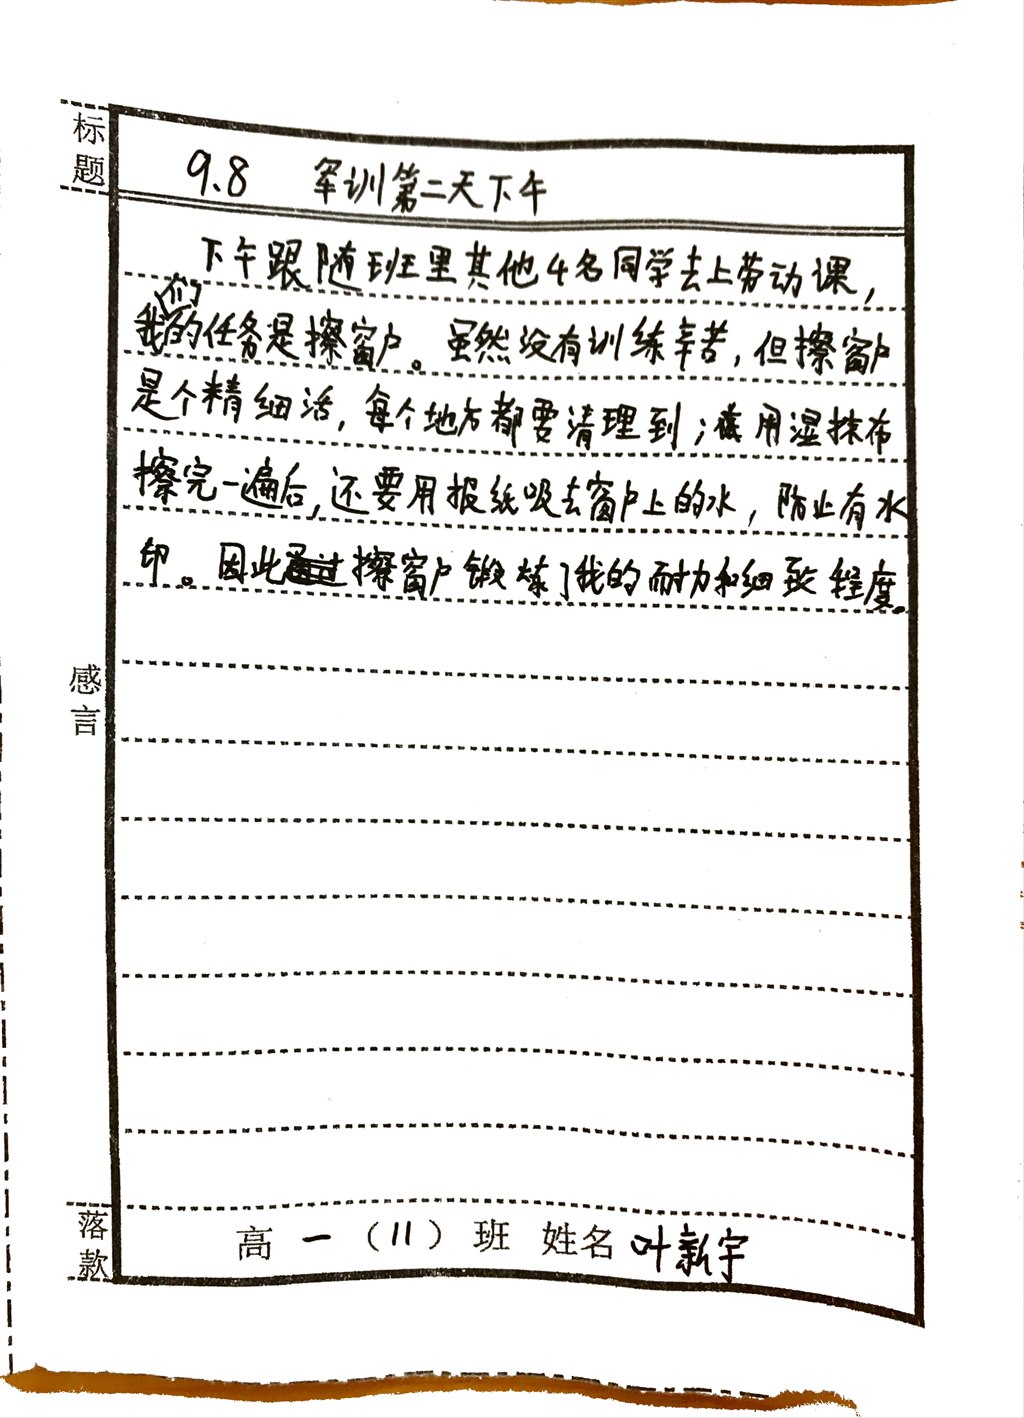 标题
9.8 军训第二天下午
下午跟随班里其他4名同学去上劳动课，
我们的任务是擦窗户。虽然没有训练辛苦，但擦窗户
是个精细活，每个地方都要清理到；用湿抹布
擦完一遍后，还要用报纸吸去窗户上的水，防止有水
印。因此通过擦窗户锻炼了我的耐力和细致程度。
感言
落款
高一（11）班 姓名 叶新宇